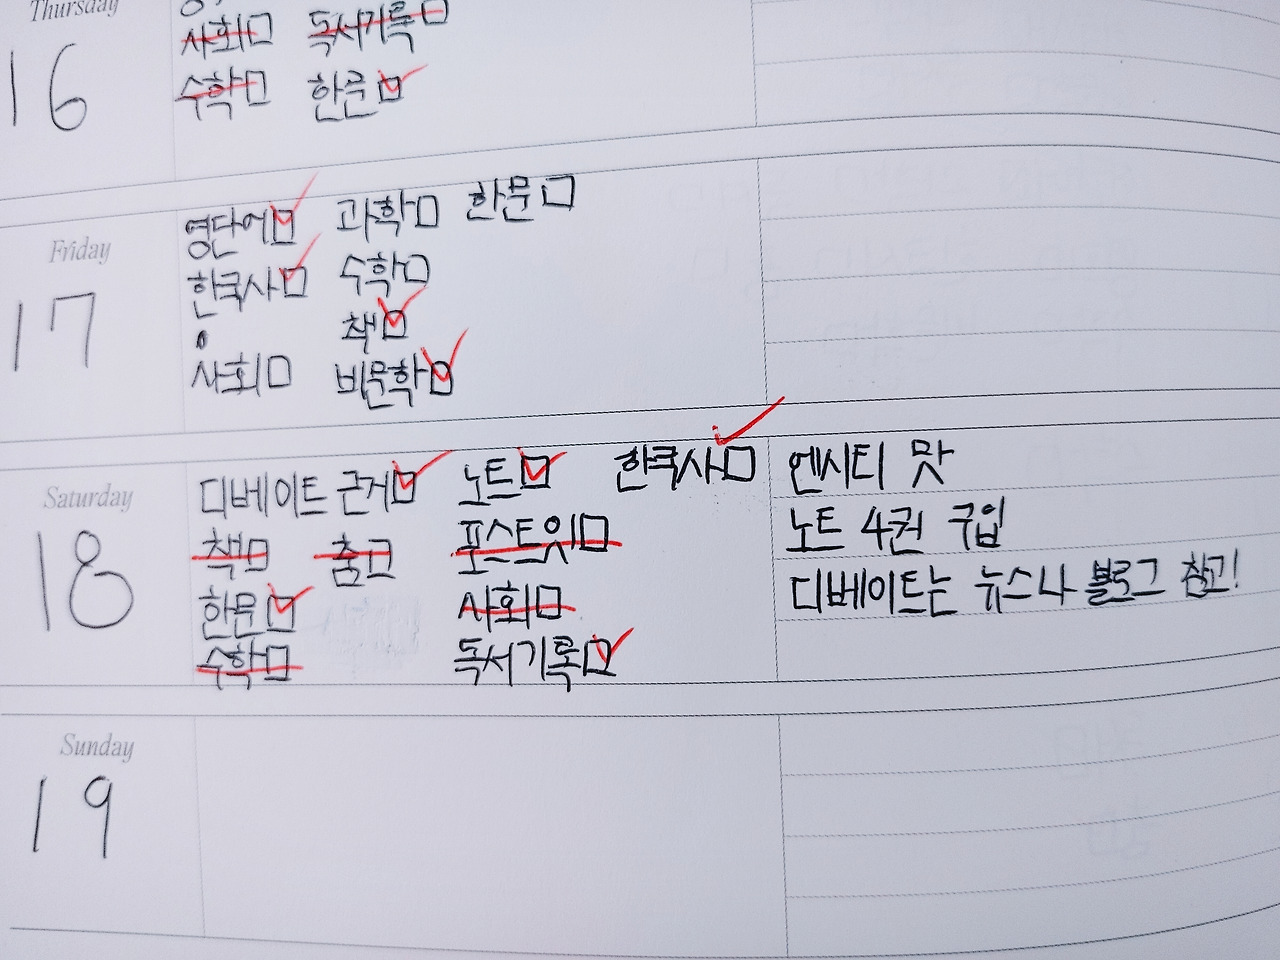 Thursday
16
사회□ 독서기록□
수학□ 한문☑
Friday
17
영단어☑ 과학□ 한문□
한국사☑ 수학□
책☑
사회□ 비문학☑
Saturday
18
디베이트 근거☑ 노트☑ 한국사☑
책□ 춤□ 포스트잇□
한문☑ 사회□
수학□ 독서기록☑
엔시티 맛
노트 4권 구입
디베이트는 뉴스나 블로그 참고!
Sunday
19